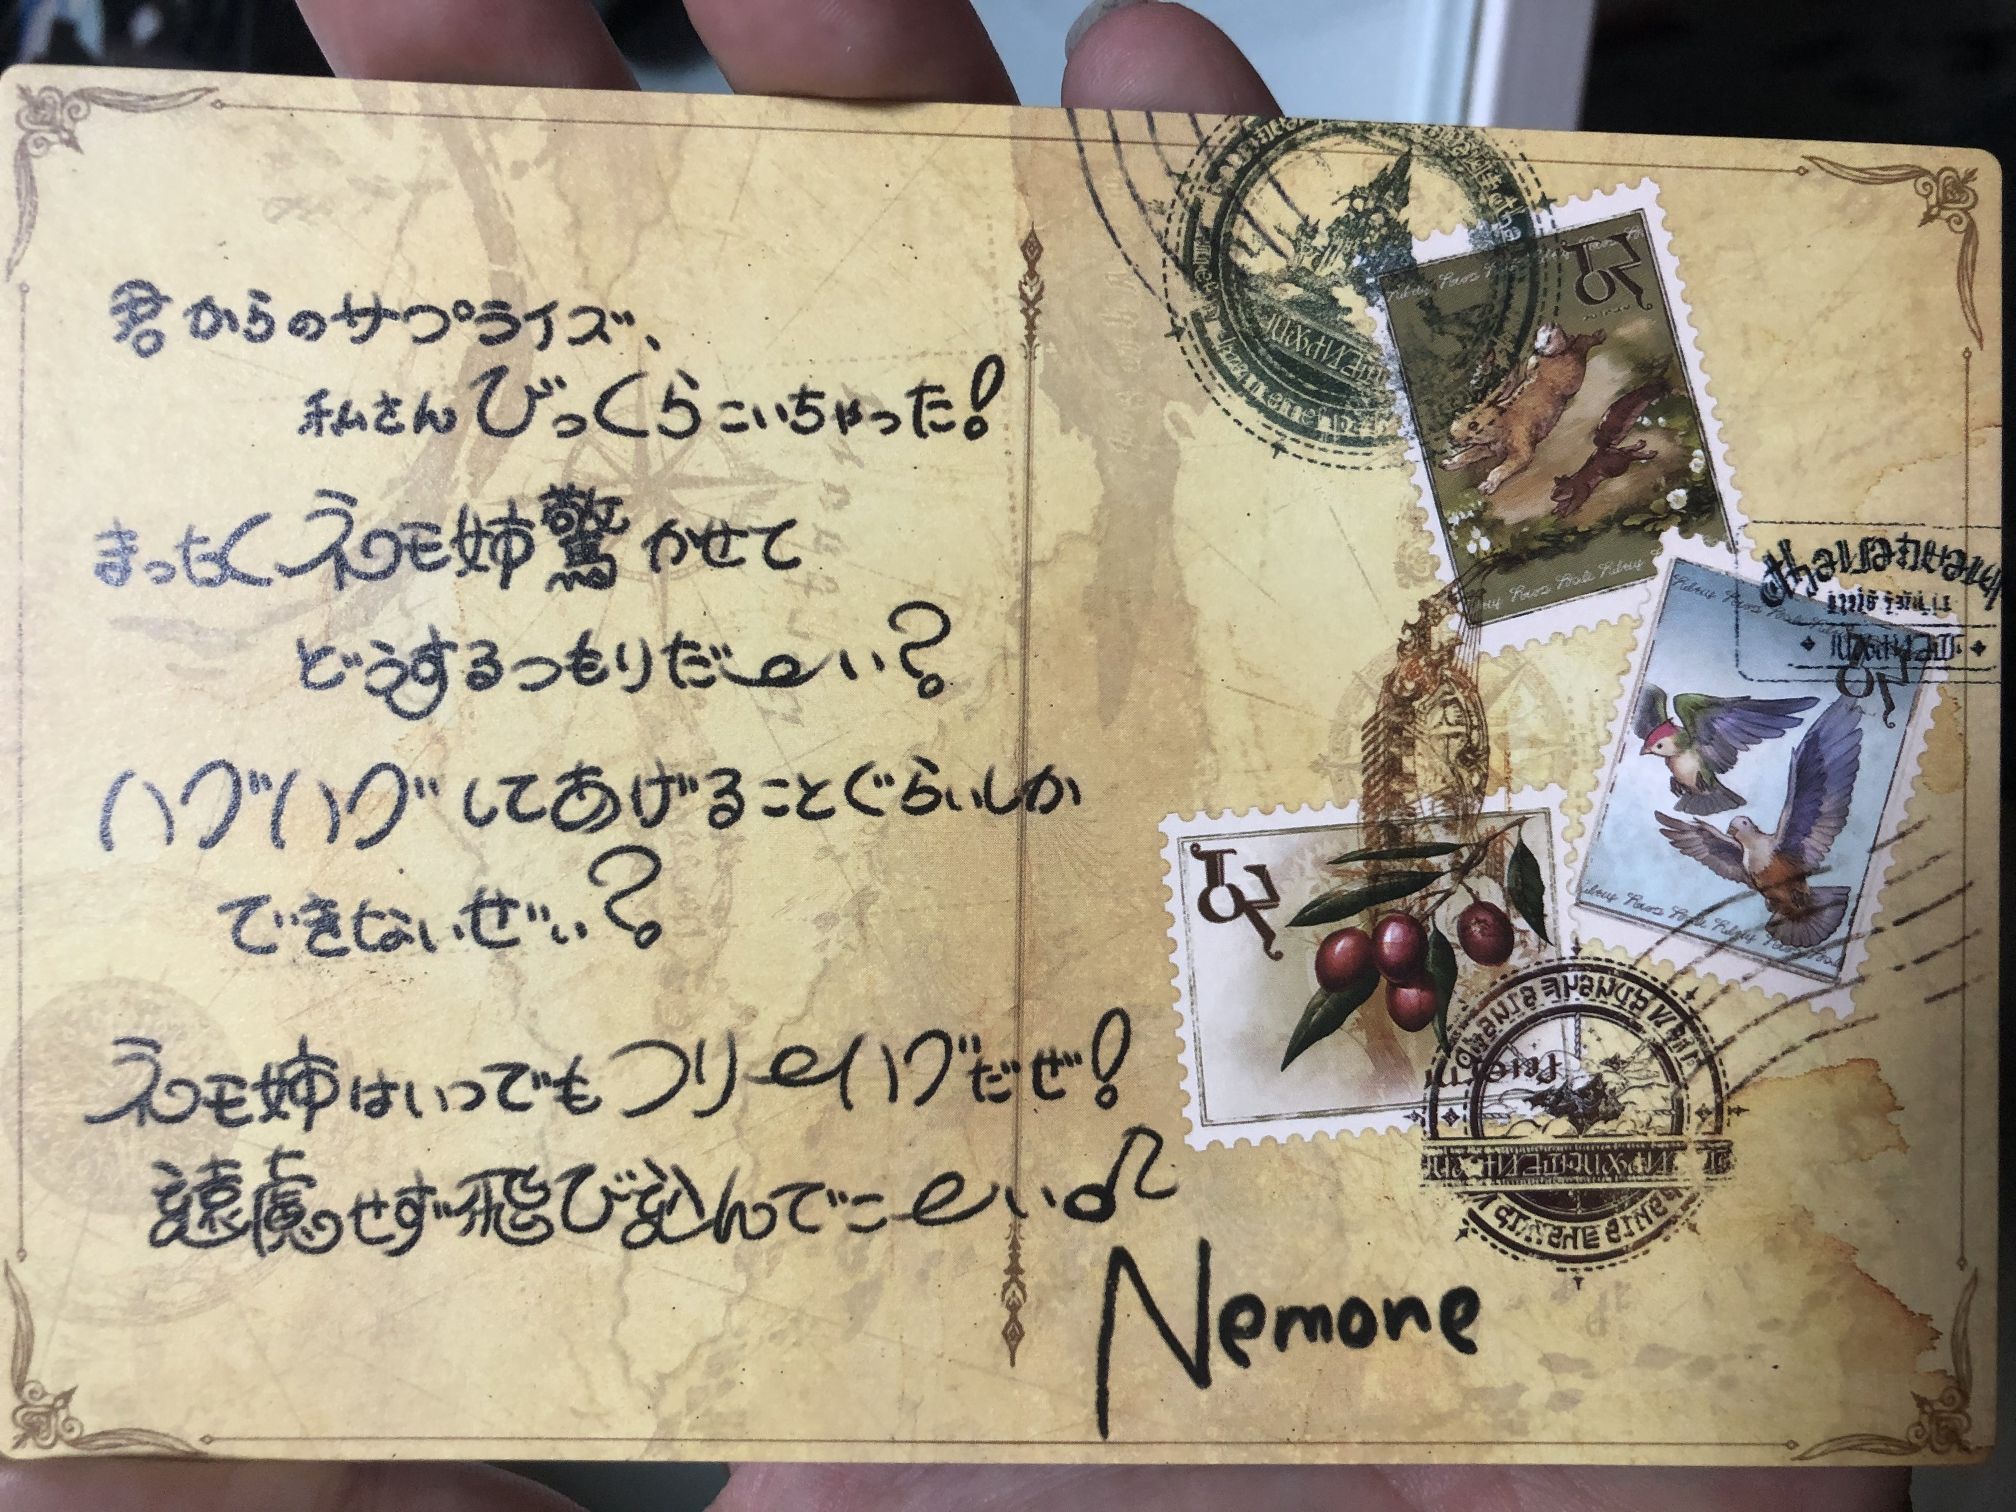 君からのサプライズ、
私さんびっくらこいちゃった!
まったくネモ姉驚かせて
どうするつもりだーい?
ハグハグしてあげることぐらいしか
できないぜぃ?
ネモ姉はいつでもフリーハグだぜ!
遠慮せず飛び込んでこーい♪
Nemone